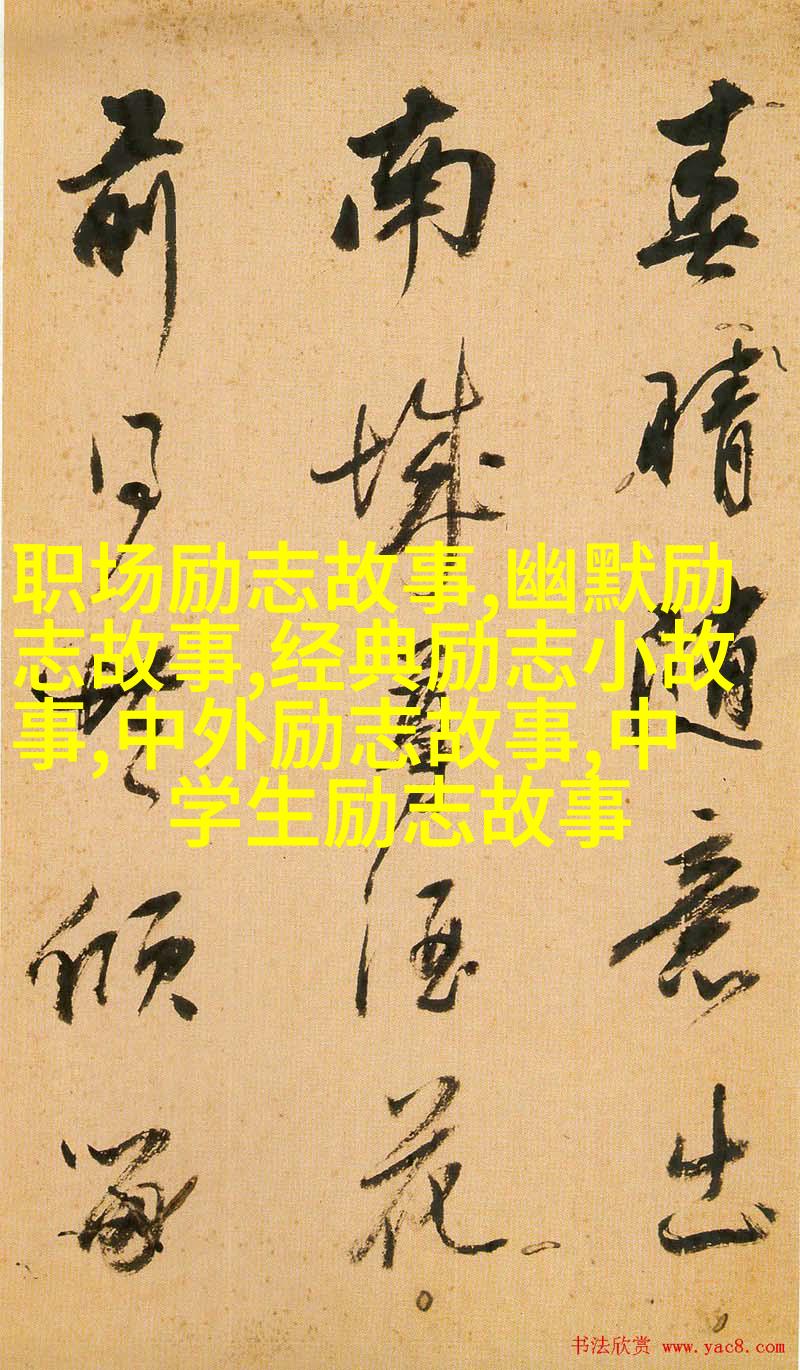 春晴随意出
南城置酒花
前日共倾
职场励志故事,幽默励
志故事,经典励志小故
事,中外励志故事,中
学生励志故事
书法欣赏 www.yac8.com